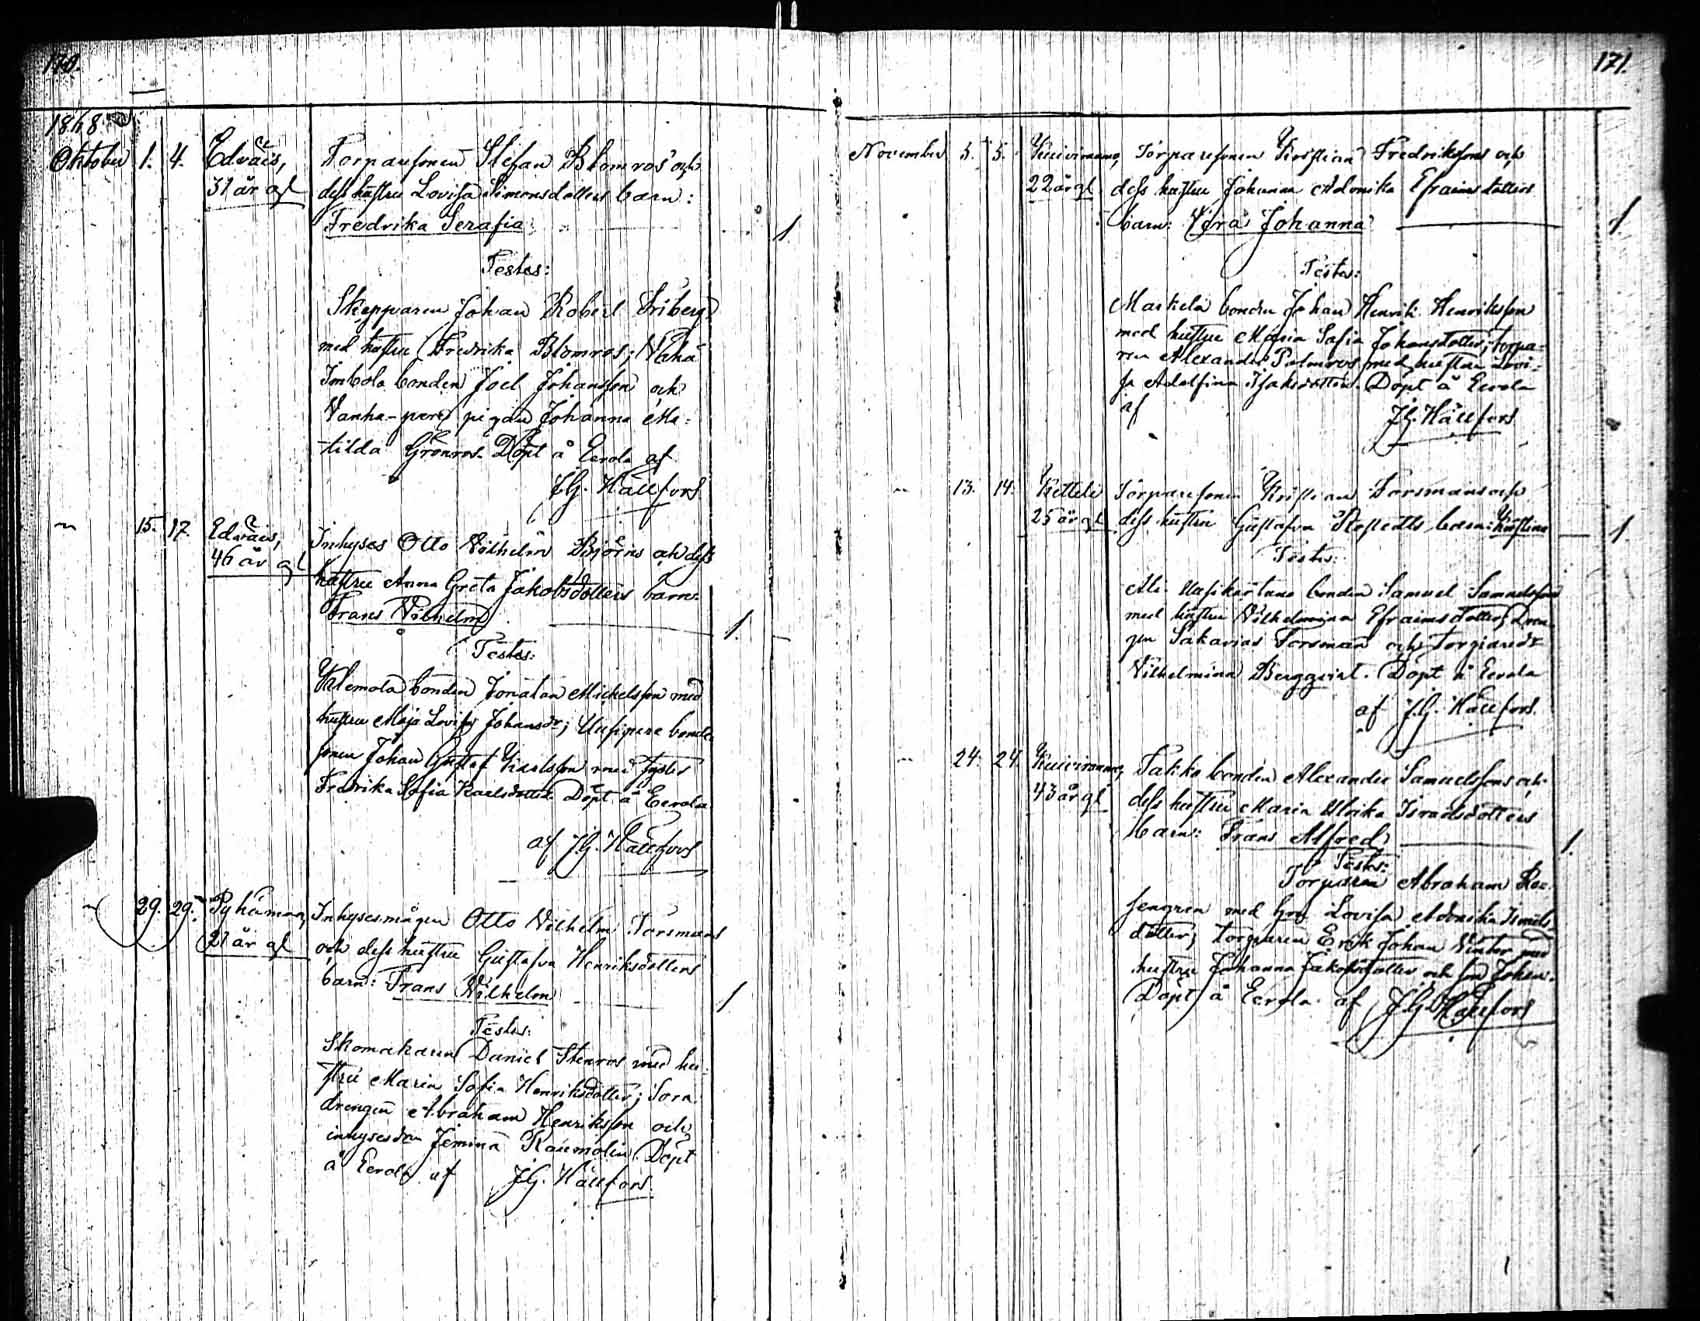 170.
1868
Oktober 1. 4. Edväis, Torparesonen Stefan Blomros' och
31 år gl dess hustru Lovisa Simonsdotters barn:
Fredrika Serafia 1
Testes:
Skepparen Johan Robert Friberg
med hustru Fredrika Blomros; Vähä
Imbola bonden Joel Johansson och
Vanha-pere pigan Johanna Ma-
tilda Grönros. Döpt å Eerola af
J.G. Hällfors
15. 17. Edväis, Inhyses Otto Vilhelm Björns och dess
46 år gl hustru Anna Greta Jakobsdotters barn:
Frans Vilhelm 1.
Testes:
bonden Jonatan Mickelsson med
hustru Maja Lovisa Johansdr; Uusipere bonde-
sonen Johan Gustaf Karlsson med syster
Fredrika Sofia Karlsdotter. Döpt å Eerola
af J.G. Hällfors
29. 29. Pyhämaa, Inhysesmågen Otto Vilhelm Forsmans
21 år gl och dess hustru Gustafva Henriksdotters
barn: Frans Vilhelm 1
Testes:
Skomakaren Daniel Stenros med hu-
stru Maria Sofia Henriksdotter; Sora
drengen Abraham Henriksson och
inhysesdrn Jemina Raumolin. Döpt
å Eerola af J.G. Hällfors.
171.
November 3. 5. Kuivirauma, Torparesonen Kristian Fredrikssons och
22 år gl dess hustru Johanna Adonika Efraimsdotters
barn: Johanna 1
Testes:
Markela bonden Johan Henrik Henriksson
med hustru Maria Sofia Johansdotter; torpa-
ren Alexander Palmros med hustru Lovi-
sa Adolfina Isaksdotter. Döpt å Eerola
af J.G. Hällfors
13. 14. Ketteli Torparesonen Kristian Forsmans och
25 år gl dess hustru Gustafva barn: Kristina 1.
Testes:
Ali-Uusikartano bonden Samuel Samuelsson
med hustru Vilhelmina Efraimsdotter; Dren-
gen Sakarias Forsman och torparedr
Vilhelmina Bergqvist. Döpt å Eerola
af J.G. Hällfors.
24. 24. Kuivirauma, Takko bonden Alexander Samuelssons och
43 år gl dess hustru Maria Ulrika Israelsdotters
barn: Frans Alfred 1.
Testes:
Torparen Abraham Ro-
sengren med Lovisa Adonika
dotter; torparen Erik Johan Winter med
hustru Johanna Jakobsdotter och son Johan.
Döpt å Eerola af J.G. Hällfors